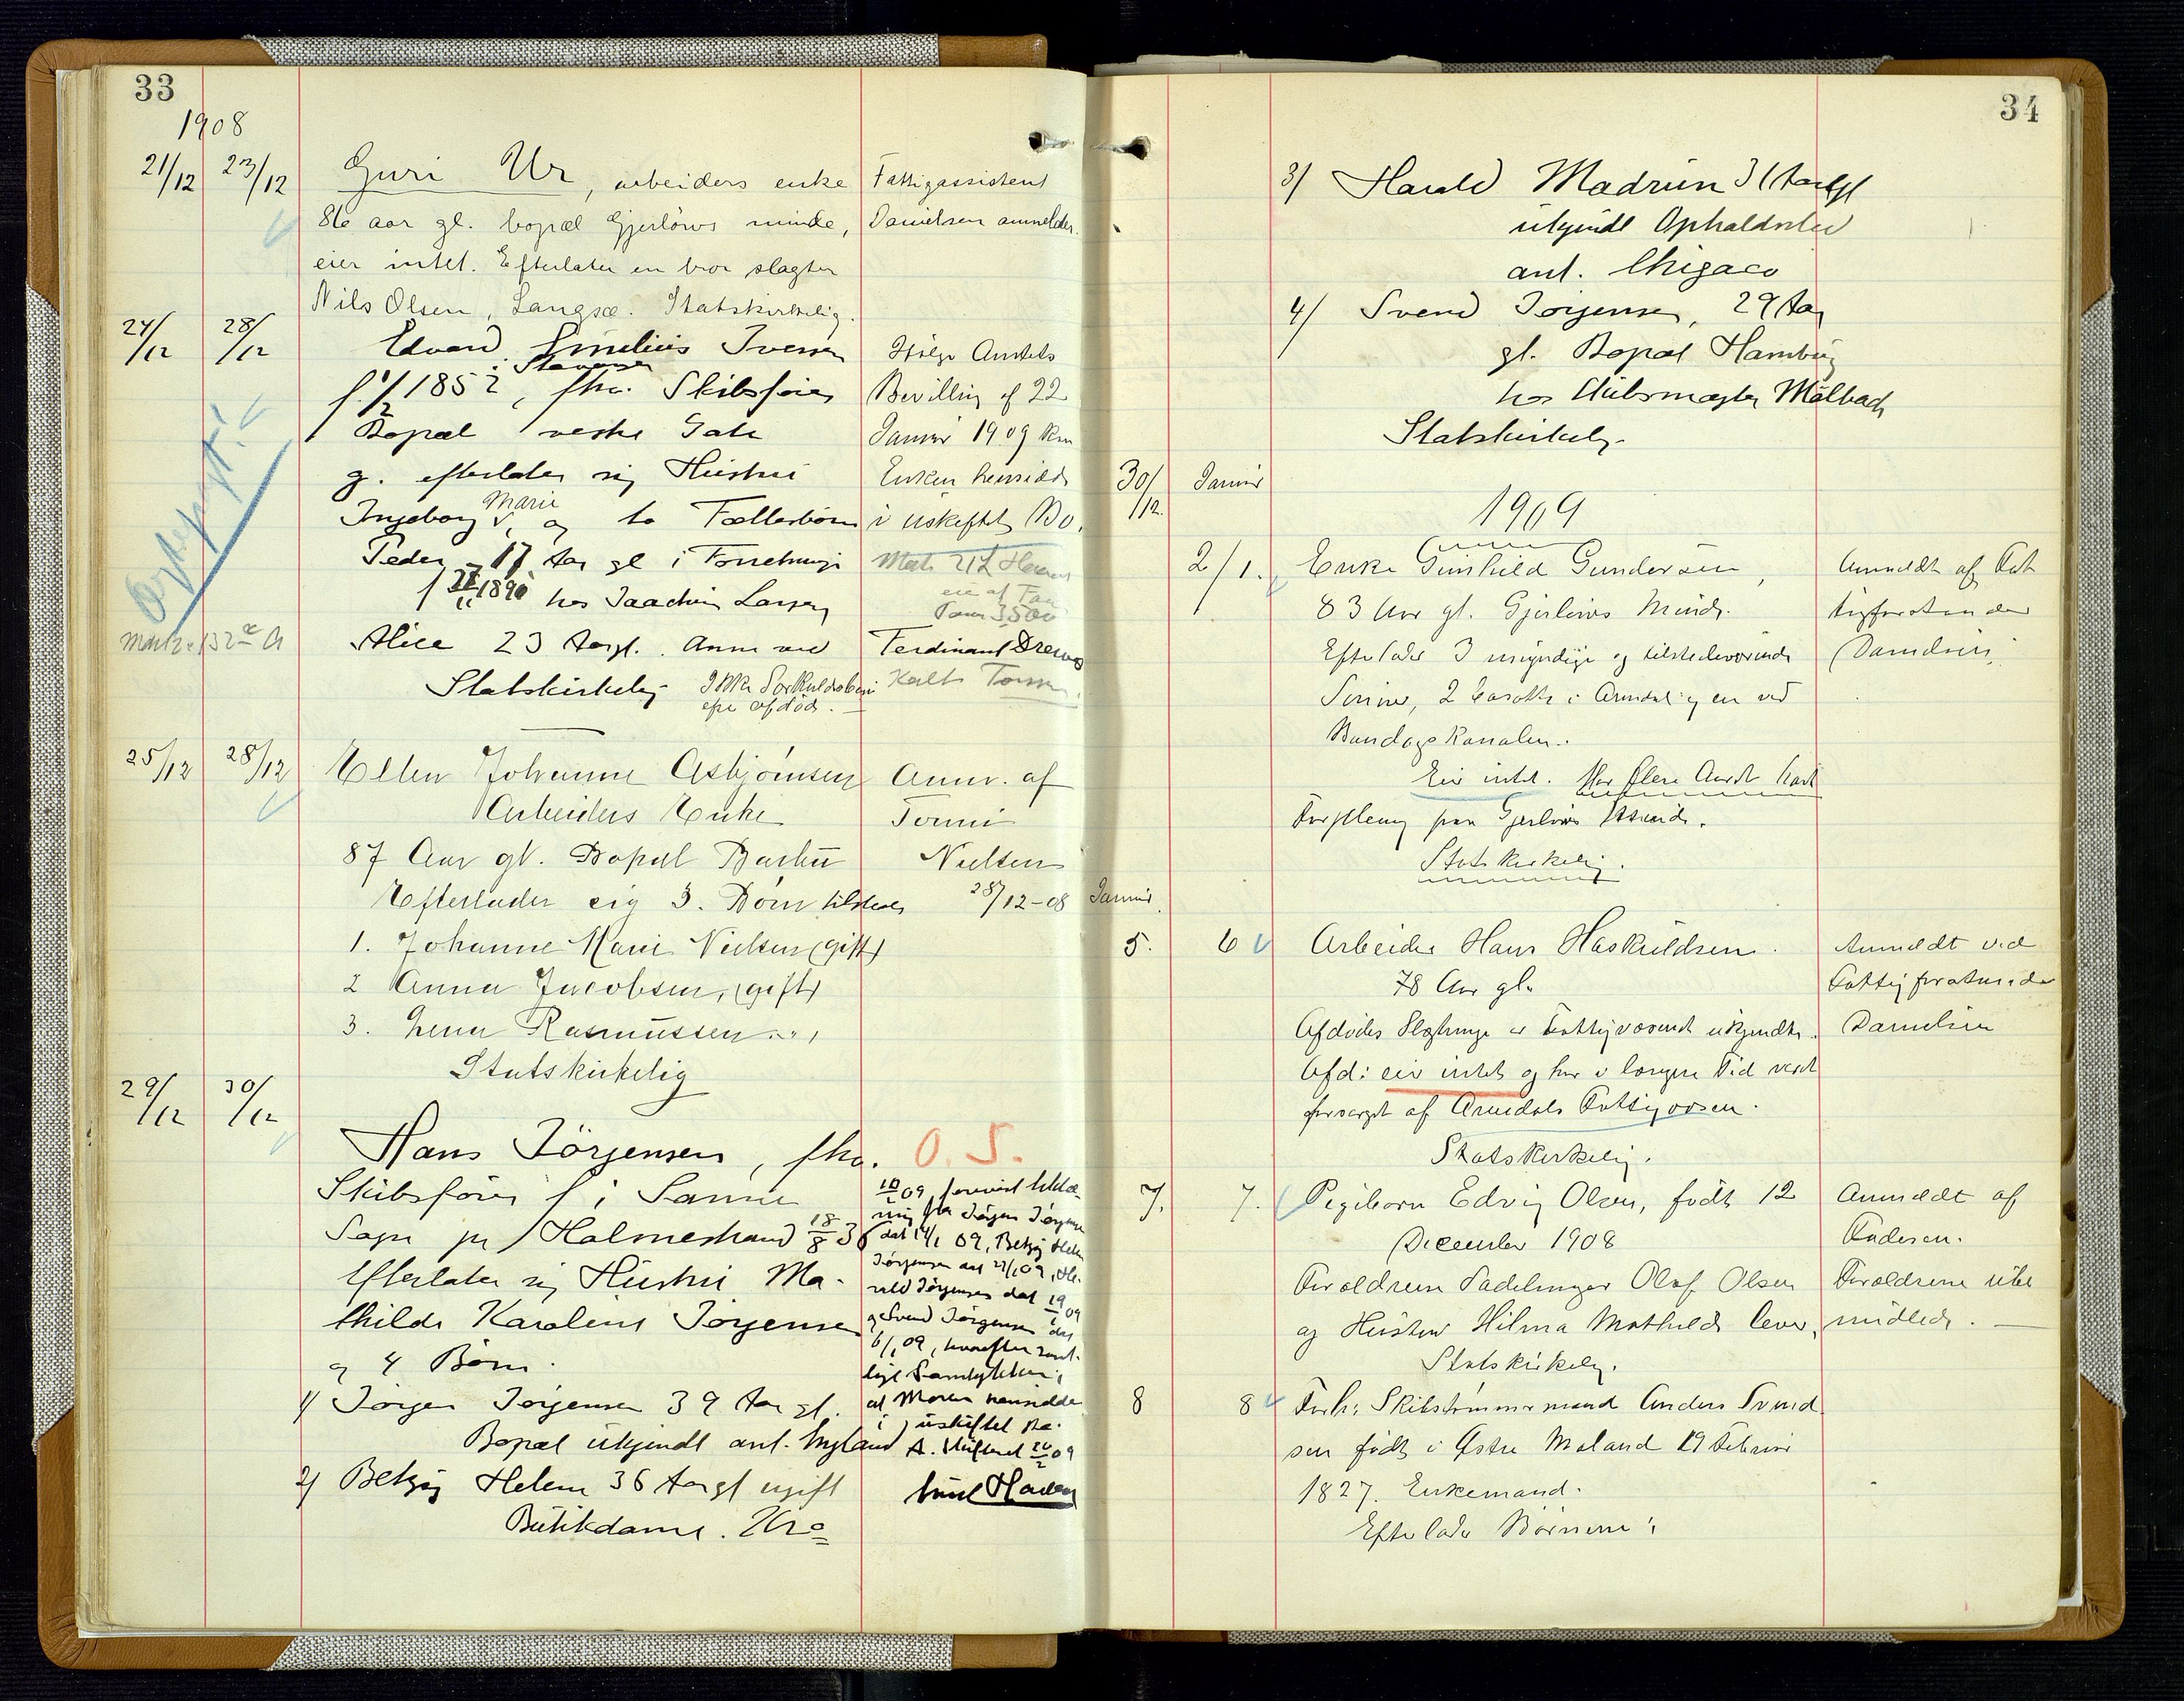 33
1908
21/12 23/12 Guri Ur, arbeiders enke
86 aar gl. bopæl Gjerløws minde,
eier intet. Efterlater en bror slagter
Nils Olsen, Langsæ. Statskirkelig.
Fattigassistent
Danielsen anmelder.
24/12 28/12 Edvard Emelius Iversen
f. 1/2 1852, fhv. Skibsfører
Bopæl vestre Gate
g. efterlater sig Hustru
Ingeborg Marie, og to Fællesbørn
Peder 17 Aar gl i Forretning
f 1890 hos Joachim Larsen
Alice 23 Aargl. Anm ved
Statskirkelig
Ifølge Amtets
Bevilling af 22
Januar 1909 kan
Enken hensidde
i uskiftet Bo.
Ferdinant Drews
25/12 28/12 Ellen Johanne Asbjörnsen
Arbeiders Enke
87 Aar gl. Bopæl Barbu
Efterlader sig 3. Börn tilstede
1. Johanne Marie Nielsen (gift)
2 Anna Jacobsen, (gift)
3. Lena Rasmussen "
Statskirkelig
Anm. af
Tomine
Nielsen
28/12-08
29/12 30/12
Hans Jörgensen, fhv.
Skibsfører f i Sannu
Sogn pr Holmestrand 18/8 36
Efterlater sig Hustru Ma-
thilde Karoline Jörgensen
og 4 Børn.
1/ Jørgen Jørgensen 39 Aar gl.
Bopæl ukjendt ant. England
2/ Betzy Helene 36 Aargl ugift
Butikdame. Kra
O. S.
09, fra Jørgen Jørgensen
dat 14/1 09, Betzy Helene
Jørgensen dat 21/1 09, Ha-
rald Jørgensen dat 19/1 09
og Svend Jørgensen dat
6/1 09, hvorefter samt-
lige Samtykker i
at Moren hensidder
i uskiftet Bo.
34
3/ Harald Madrun 31 Aargl
ukjendt Opholdssted
ant. Chigaco
4/ Svend Jørgensen, 29 Aar
gl. Bopæl Hamburg
hos Skibsmægler Mølbach
Statskirkelig.
30/12. Januar
1909
2/1. Enke Gunhild Gundersen,
83 Aar gl. Gjerløws Minde.
Efterlader 3 myndige og tilstedeværende
Sønner, 2 bosatte i Arendal og en ved
Bandags Kanalen.
Eier intet. Har flere Aar havt
Forpleining paa Gjerløws Minde.
Statskirkelig.
Anmeldt af Fat
tigforstander
Danielsen.
Januar.
5. 6 Arbeider Hans Haskuldsen.
78 Aar gl.
Afdødes Slægtninge er Fattigvæsenet ukjendte.
Afd: eier intet og har i længere Tid været
forsørget af Arendals Fattigvæsen.
Statskirkelig.
Anmeldt ved
Fattigforstander
Danielsen
7. 7. Pigebarn Edvig Olsen, født 12
December 1908
Forældrene Sadelmager Olaf Olsen
og Hustru Hilma Mathilde lever,
Statskirkelig.
Anmeldt af
Faderen.
Forældrene ube
midlede.
8 8 Forh: Skibstømmermand Anders Svend
sen født i Østre Moland 19 Februar
1827. Enkemand.
Efterlader Børnene: